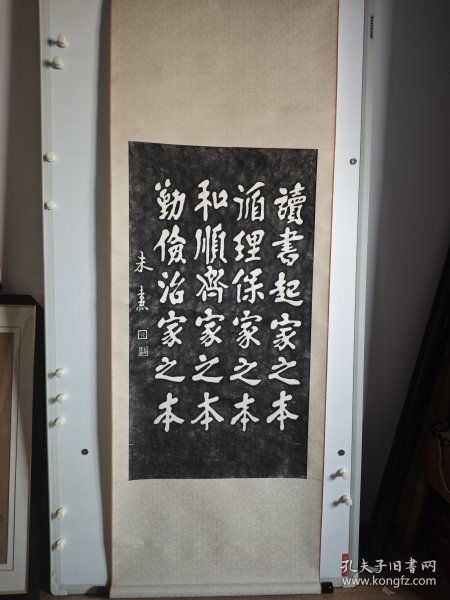 讀書起家之本
循理保家之本
和順齊家之本
勤儉治家之本
朱熹
孔夫子旧书网
www.kongfz.com